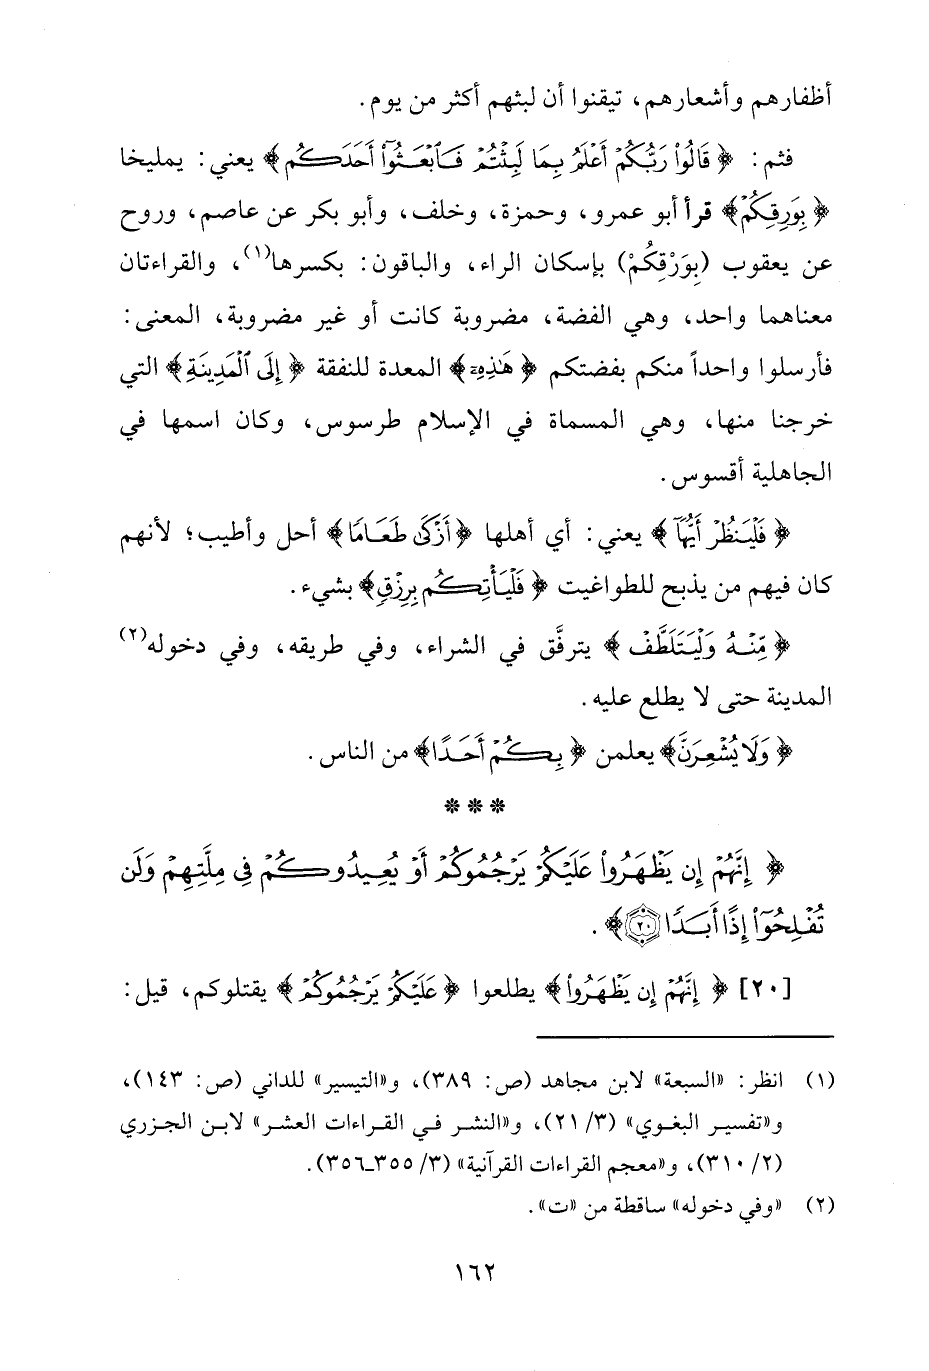 أظفارهم وأشعارهم، تيقنوا أن لبثهم أكثر من يوم.
فثم: ﴿قَالُوا۟ رَبُّكُمْ أَعْلَمُ بِمَا لَبِثْتُمْ فَٱبْعَثُوٓا۟ أَحَدَكُم﴾ يعني: يمليخا
﴿بِوَرِقِكُمْ﴾ قرأ أبو عمرو، وحمزة، وخلف، وأبو بكر عن عاصم، وروح
عن يعقوب (بِوَرْقِكُمْ) بإسكان الراء، والباقون: بكسرها(١)، والقراءتان
معناهما واحد، وهي الفضة، مضروبة كانت أو غير مضروبة، المعنى:
فأرسلوا واحداً منكم بفضتكم ﴿هَٰذِهِۦٓ﴾ المعدة للنفقة ﴿إِلَى ٱلْمَدِينَةِ﴾ التي
خرجنا منها، وهي المسماة في الإسلام طرسوس، وكان اسمها في
الجاهلية أقسوس.
﴿فَلْيَنظُرْ أَيُّهَآ﴾ يعني: أي أهلها ﴿أَزْكَىٰ طَعَامًا﴾ أحل وأطيب؛ لأنهم
كان فيهم من يذبح للطواغيت ﴿فَلْيَأْتِكُم بِرِزْقٍ﴾ بشيء.
﴿مِّنْهُ وَلْيَتَلَطَّفْ﴾ يترفَّق في الشراء، وفي طريقه، وفي دخوله(٢)
المدينة حتى لا يطلع عليه.
﴿وَلَا يُشْعِرَنَّ﴾ يعلمن ﴿بِكُمْ أَحَدًا﴾ من الناس.
* * *
﴿إِنَّهُمْ إِن يَظْهَرُوا۟ عَلَيْكُمْ يَرْجُمُوكُمْ أَوْ يُعِيدُوكُمْ فِى مِلَّتِهِمْ وَلَن
تُفْلِحُوٓا۟ إِذًا أَبَدًا ٢٠﴾.
[٢٠] ﴿إِنَّهُمْ إِن يَظْهَرُوا۟﴾ يطلعوا ﴿عَلَيْكُمْ يَرْجُمُوكُمْ﴾ يقتلوكم، قيل:
(١) انظر: «السبعة» لابن مجاهد (ص: ٣٨٩)، و«التيسير» للداني (ص: ١٤٣)،
و«تفسير البغوي» (٣/ ٢١)، و«النشر في القراءات العشر» لابن الجزري
(٢/ ٣١٠)، و«معجم القراءات القرآنية» (٣/ ٣٥٥-٣٥٦).
(٢) «وفي دخوله» ساقطة من «ت».
١٦٢